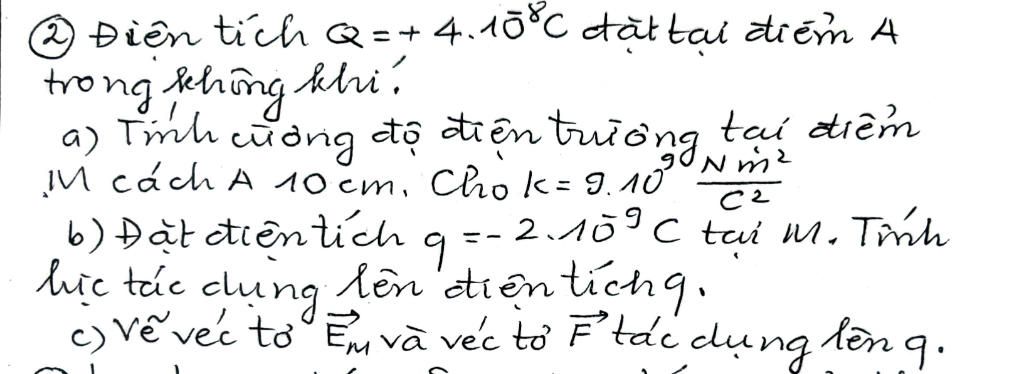 ② Điện tích Q = + 4.10⁻⁸C đặt tại điểm A
trong không khí.
a) Tính cường độ điện trường tại điểm
M cách A 10 cm. Cho k = 9.10⁹ Nm²/C²
b) Đặt điện tích q = - 2.10⁻⁹ C tại M. Tính
lực tác dụng lên điện tích q.
c) Vẽ véc tơ E⃗_M và véc tơ F⃗ tác dụng lên q.